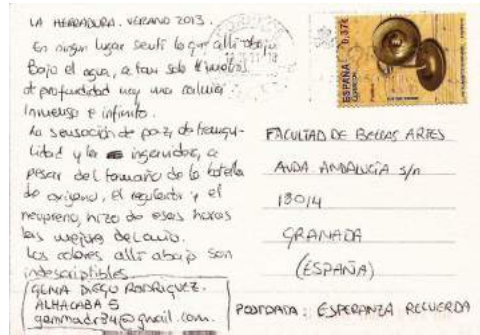 LA HERRADURA. VERANO 2013.
En ningun lugar sentí lo que allí abajo
Bajo el agua, a tan solo metros
de profundidad hay una calma
inmensa e infinita.
La sensación de paz, de tranqui-
lidad y la ingravidez, a
pesar del tamaño de la botella
de oxígeno, el regulador y el
neopreno, hizo de esas horas
las mejores del año.
Los colores allí abajo son
indescriptibles
GEMA DIEGO RODRIGUEZ.
ALHACABA 5
gemmadr34@gmail.com.
ESPAÑA
CORREOS
0,37€
FACULTAD DE BELLAS ARTES
AVDA ANDALUCÍA s/n
18014
GRANADA
(ESPAÑA)
POSTDATA: ESPERANZA RECUERDA